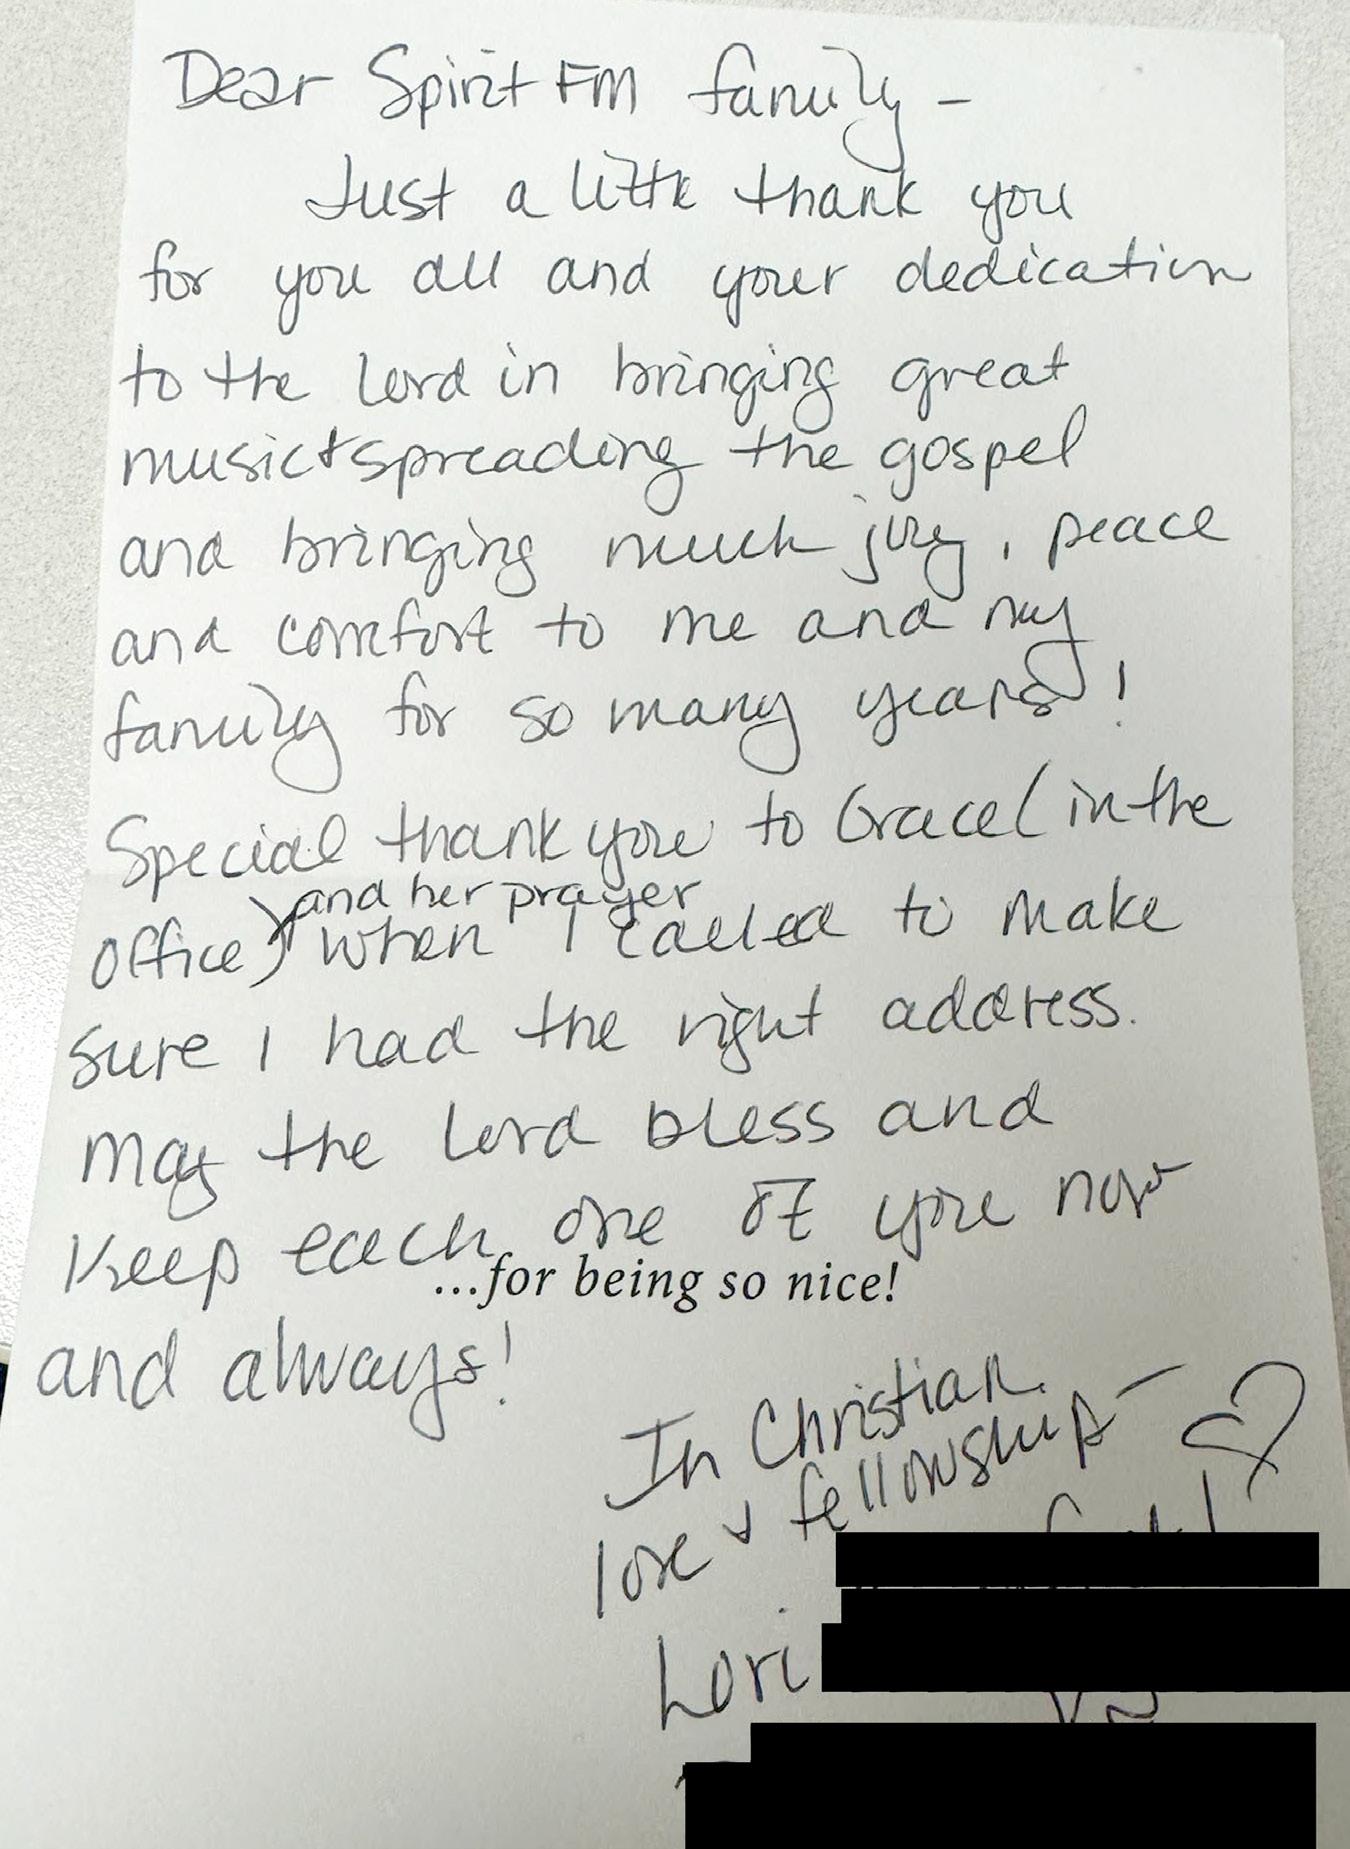 Dear Spirit FM family -
Just a little thank you
for you all and your dedication
to the Lord in bringing great
music + spreading the gospel
and bringing much joy, peace
and comfort to me and my
family for so many years!
Special thank you to Grace (in the
and her prayer
office) when I called to make
sure I had the right address.
May the Lord bless and
Keep each one of you now
...for being so nice!
and always!
In Christian
love & fellowship -
Lori